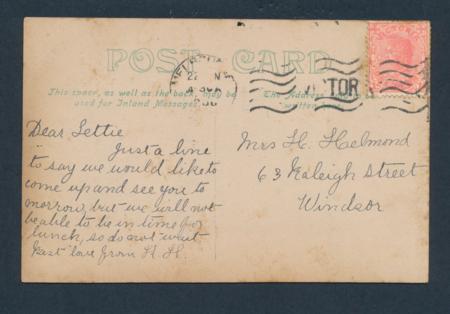 POST CARD
This space, as well as the back, may be
used for Inland Messages.
The Address
written
VICTORIA
TOR
Dear Lettie
Just a line
to say we would like to
come up and see you to
morrow, but we will not
be able to be in time for
lunch, so do not wait
Last love from H. H.
Mrs H. Helmond
63 Raleigh Street
Windsor